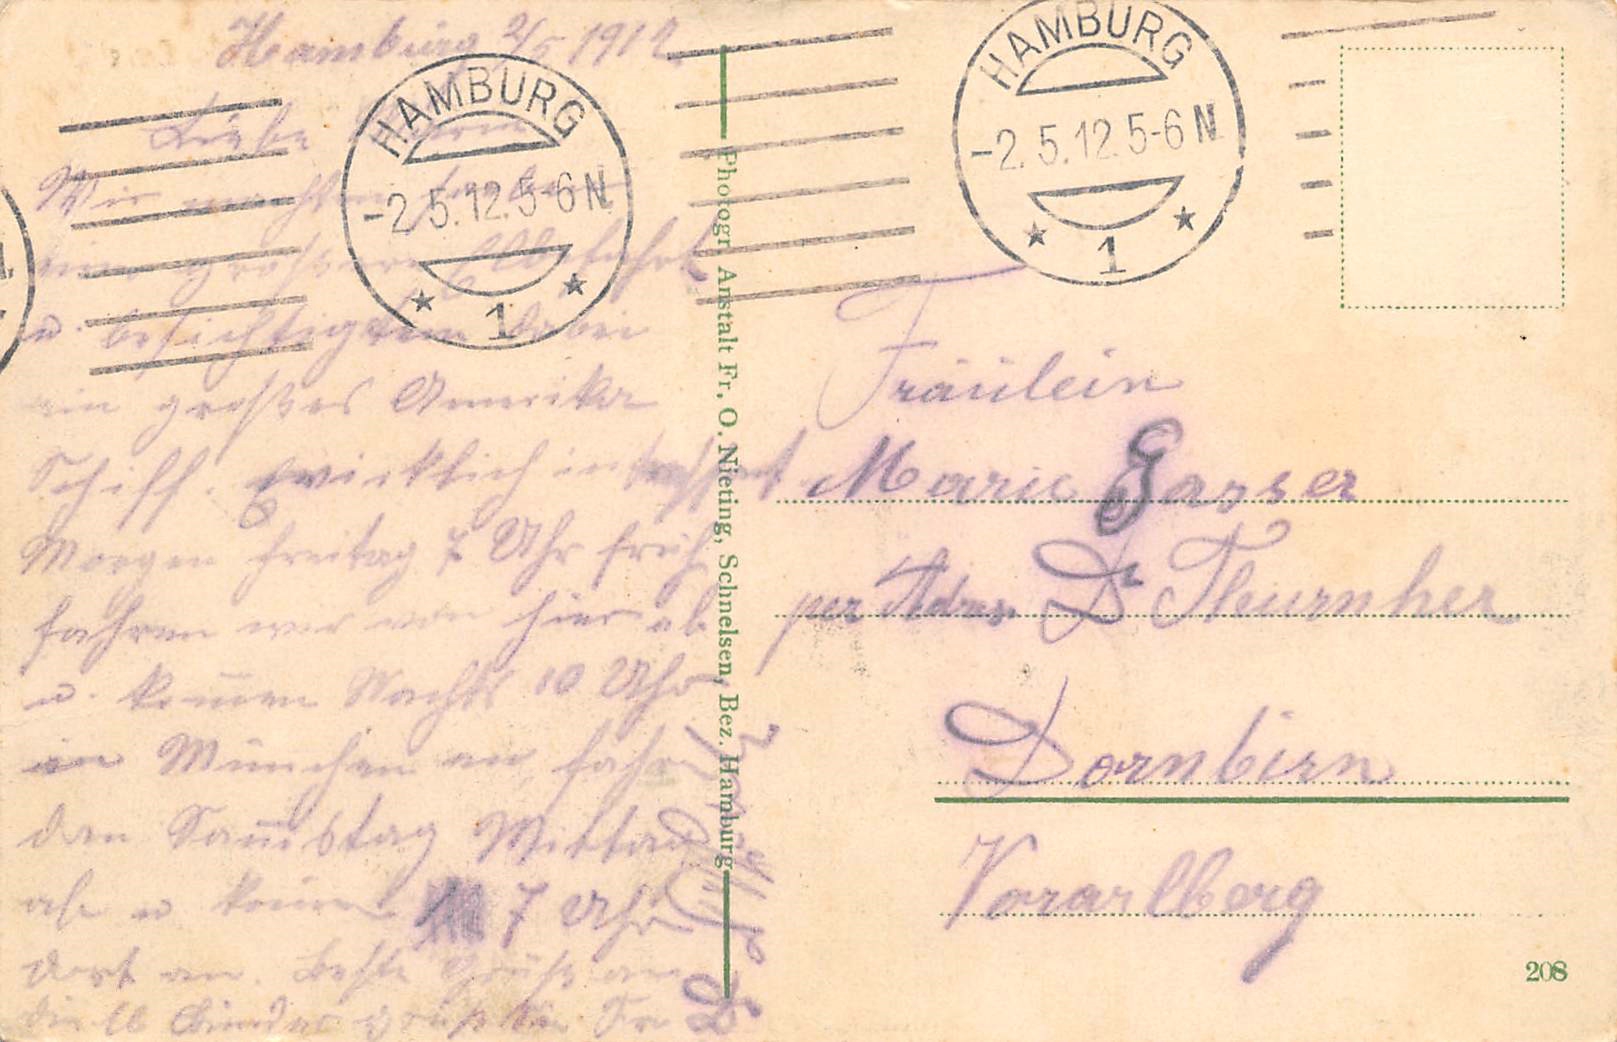 Hamburg 2/5 1912
Liebe
Wir machten
eine grössere Elbefahrt
u. besichtigten dabei
ein großes Amerika
Schiff. wirklich interessant
Morgen Freitag 7 Uhr früh
fahren wir von hier ab
u. kom̄en Nachts 10 Uhr
in München an, fahren
dan Sam̄stag Mittag
ab u kom̄en 7 Uhr
dort an. Beste Grüße an
die lb Kinder
HAMBURG
-2.5.12.5-6N
1
HAMBURG
-2.5.12.5-6N
1
Photogr. Anstalt Fr. O. Nieting, Schnelsen, Bez. Hamburg
Fräulein
Marie Gasser
per Adres. Dr Thurnher
Dornbirn
Vorarlberg
208